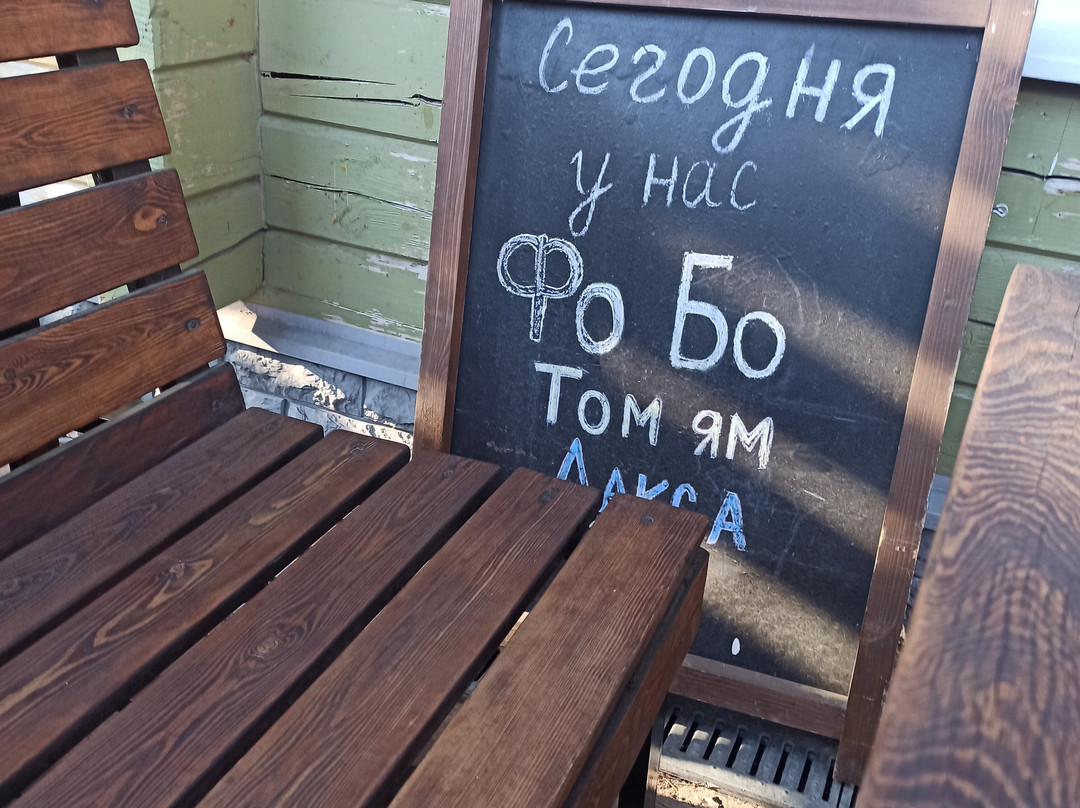 Сегодня
у нас
Фо Бо
Том ям
Лакса